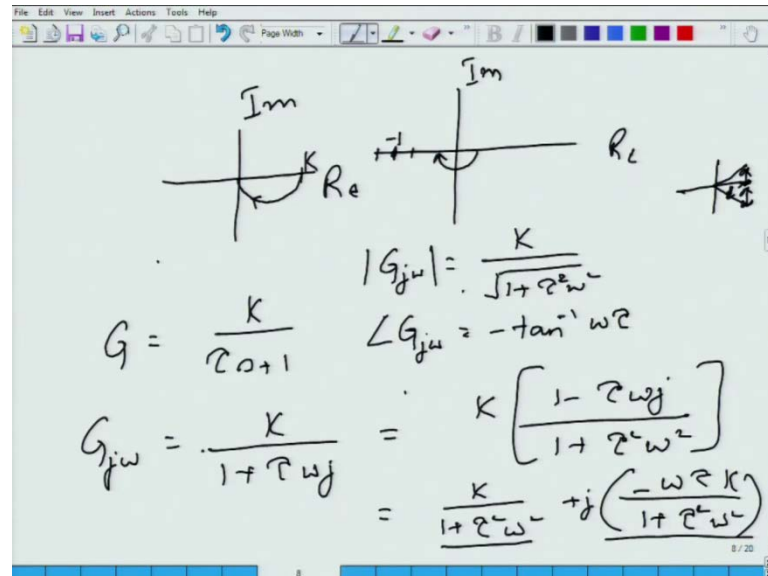 File Edit View Insert Actions Tools Help
Page Width
Im
Im
K
Re
-1
Re
|G_{jω}| = K / √(1 + τ²ω²)
G = K / (τs + 1)
∠G_{jω} = -tan⁻¹ ωτ
G_{jω} = K / (1 + τωj) = K [ (1 - τωj) / (1 + τ²ω²) ]
= K / (1 + τ²ω²) + j ( -ωτK / (1 + τ²ω²) )
8 / 20
8